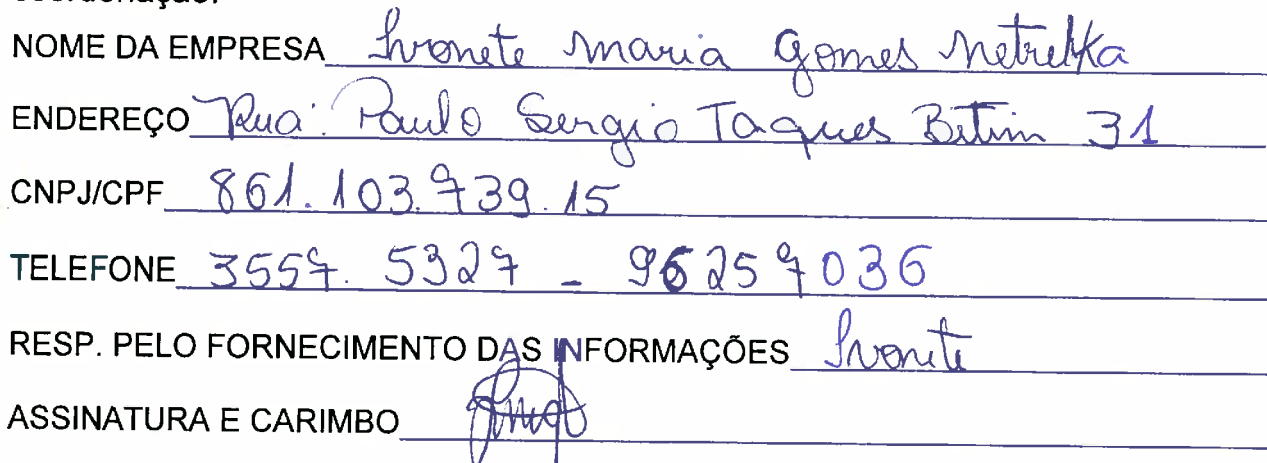 NOME DA EMPRESA Ivonete Maria Gomes Netrelka
ENDEREÇO Rua: Paulo Sergio Taques Bitim 31
CNPJ/CPF 861.103.739.15
TELEFONE 3557. 5327 - 96257036
RESP. PELO FORNECIMENTO DAS INFORMAÇÕES Ivonete
ASSINATURA E CARIMBO